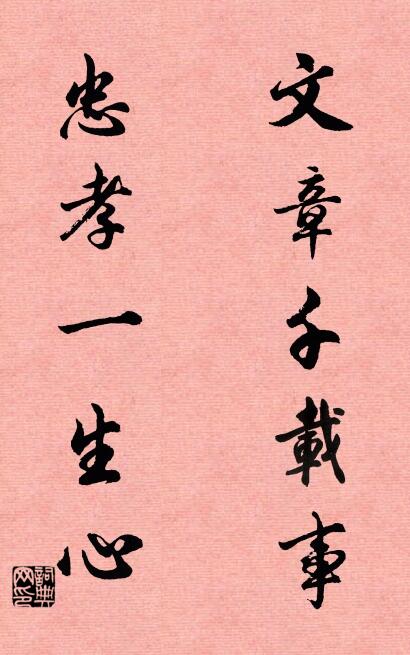 文章千載事
忠孝一生心
詞典网印